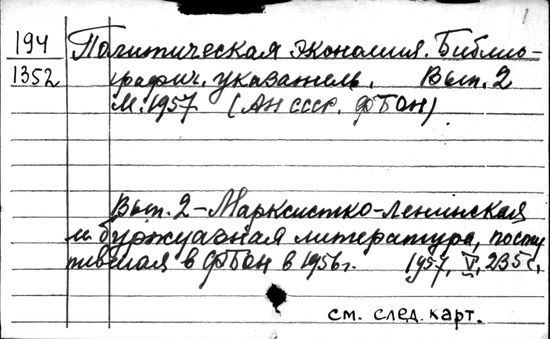 194 Политическая экономия. Библио-
1352 графич. указатель. Вып. 2
М. 1957. (АН СССР. ФБОН)
Вып. 2 – Марксистко-Ленинская
и буржуазная литература, посту
пившая в ФБОН в 1956 г. 1957, V, 235 с.
см. след. карт.